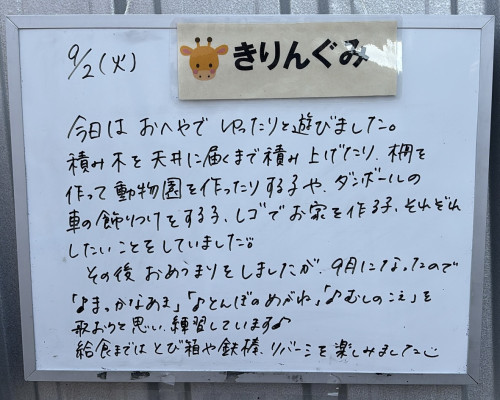 9/2(火)
きりんぐみ
今日は おへやで ゆったりと遊びました。
積み木を天井に届くまで積み上げたり、柵を
作って動物園を作ったりする子や、ダンボールの
車の飾りつけをする子、レゴでお家を作る子、それぞれ
したいことをしていました。
その後 おあつまりをしましたが、9月になったので
「♪まっかなあき」「♪とんぼのめがね」「♪むしのこえ」を
歌おうと思い、練習しています♪
給食まではとび箱や鉄棒、リバーシを楽しみました